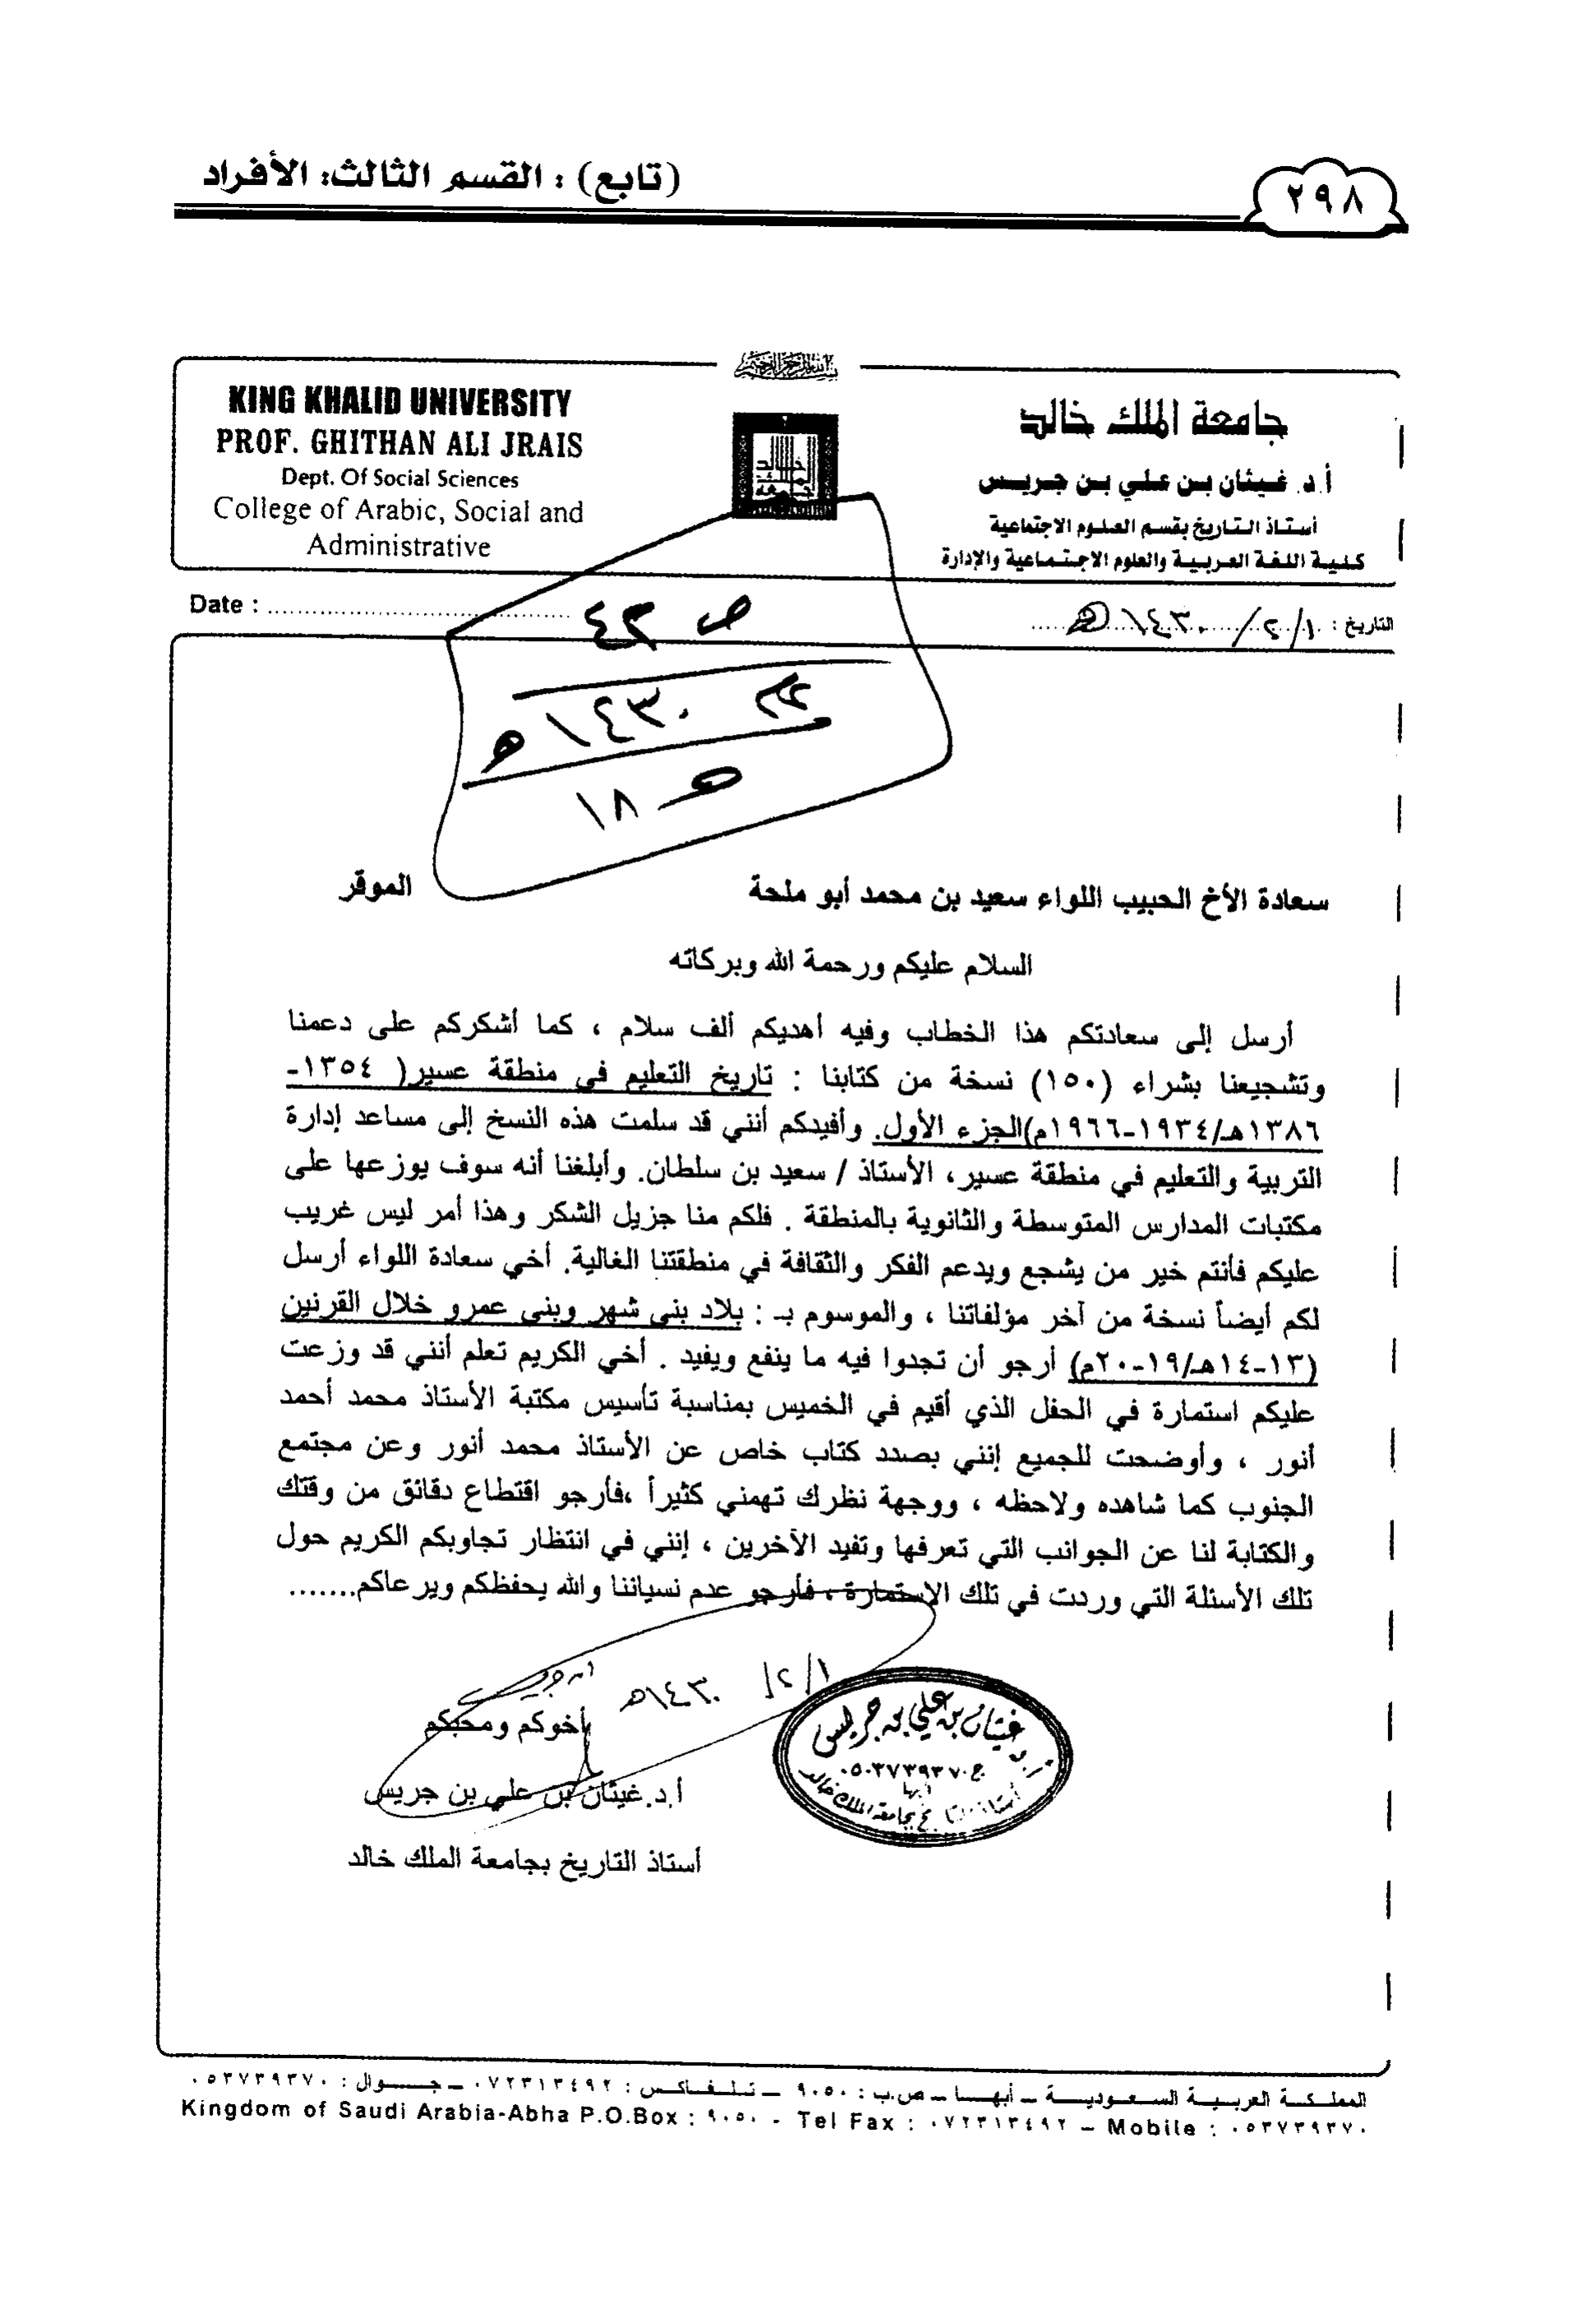 ٢٩٨
(تابع) : القسم الثالث: الأفراد
بسم الله الرحمن الرحيم
KING KHALID UNIVERSITY
PROF. GHITHAN ALI JRAIS
Dept. Of Social Sciences
College of Arabic, Social and
Administrative
جامعة الملك خالد
أ.د. غيثان بن علي بن جريس
أستاذ التاريخ بقسم العلوم الاجتماعية
كلية اللغة العربية والعلوم الاجتماعية والإدارة
Date :
التاريخ : ١/٢/١٤٣٠هـ
ص ٤٣
١٤٣٠ هـ
١٨
سعادة الأخ الحبيب اللواء سعيد بن محمد أبو ملحة الموقر
السلام عليكم ورحمة الله وبركاته
أرسل إلى سعادتكم هذا الخطاب وفيه أهديكم ألف سلام ، كما أشكركم على دعمنا
وتشجيعنا بشراء (١٥٠) نسخة من كتابنا : تاريخ التعليم في منطقة عسير( ١٣٥٤-
١٣٨٦هـ/١٩٣٤-١٩٦٦م)الجزء الأول. وأفيدكم أنني قد سلمت هذه النسخ إلى مساعد إدارة
التربية والتعليم في منطقة عسير، الأستاذ / سعيد بن سلطان. وأبلغنا أنه سوف يوزعها على
مكتبات المدارس المتوسطة والثانوية بالمنطقة . فلكم منا جزيل الشكر وهذا أمر ليس غريب
عليكم فأنتم خير من يشجع ويدعم الفكر والثقافة في منطقتنا الغالية. أخي سعادة اللواء أرسل
لكم أيضاً نسخة من آخر مؤلفاتنا ، والموسوم بـ : بلاد بني شهر وبني عمرو خلال القرنين
(١٣-١٤هـ/١٩-٢٠م) أرجو أن تجدوا فيه ما ينفع ويفيد . أخي الكريم تعلم أنني قد وزعت
عليكم استمارة في الحفل الذي أقيم في الخميس بمناسبة تأسيس مكتبة الأستاذ محمد أحمد
أنور ، وأوضحت للجميع إنني بصدد كتاب خاص عن الأستاذ محمد أنور وعن مجتمع
الجنوب كما شاهده ولاحظه ، ووجهة نظرك تهمني كثيراً ،فأرجو اقتطاع دقائق من وقتك
والكتابة لنا عن الجوانب التي تعرفها وتفيد الآخرين ، إنني في انتظار تجاوبكم الكريم حول
تلك الأسئلة التي وردت في تلك الاستمارة ، فأرجو عدم نسياننا والله يحفظكم ويرعاكم.......
١/٢/١٤٣٠هـ
أخوكم ومحبكم
أ.د. غيثان بن علي بن جريس
أستاذ التاريخ بجامعة الملك خالد
أ.د غيثان بن علي بن جريس
ج ٠٥٠٣٧٣٩٣٧٠
أبها
أستاذ التاريخ بجامعة الملك خالد
المملكة العربية السعودية – أبها – ص.ب : ٩٠٥٠ – تلفاكس : ٠٧٢٣١٣٤٩٢ – جوال : ٠٥٣٧٣٩٣٧٠
Kingdom of Saudi Arabia-Abha P.O.Box : ٩٠٥٠ - Tel Fax : ٠٧٢٣١٣٤٩٢ – Mobile : ٠٥٣٧٣٩٣٧٠